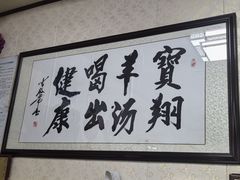 寶翔
羊汤
喝出
健康